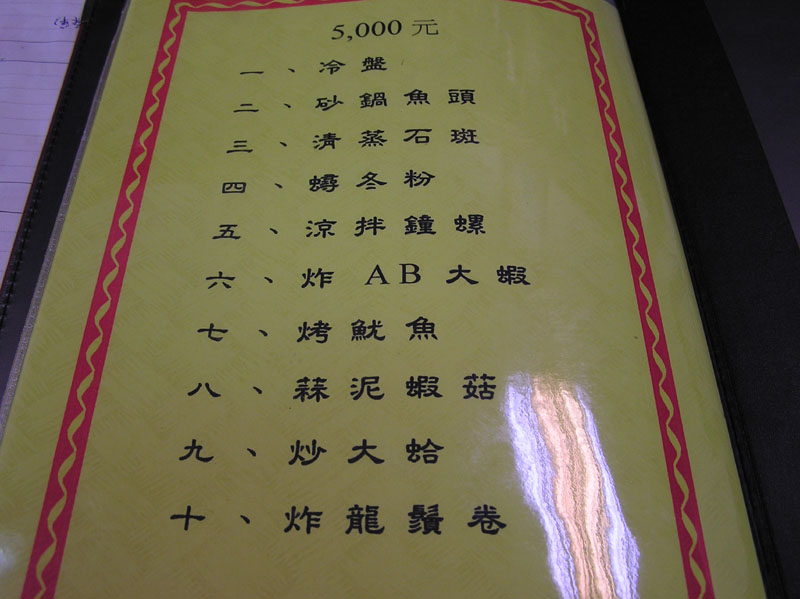 5,000 元
一、冷盤
二、砂鍋魚頭
三、清蒸石斑
四、蟳冬粉
五、涼拌鐘螺
六、炸 AB 大蝦
七、烤魷魚
八、蒜泥蝦菇
九、炒大蛤
十、炸龍鬚卷